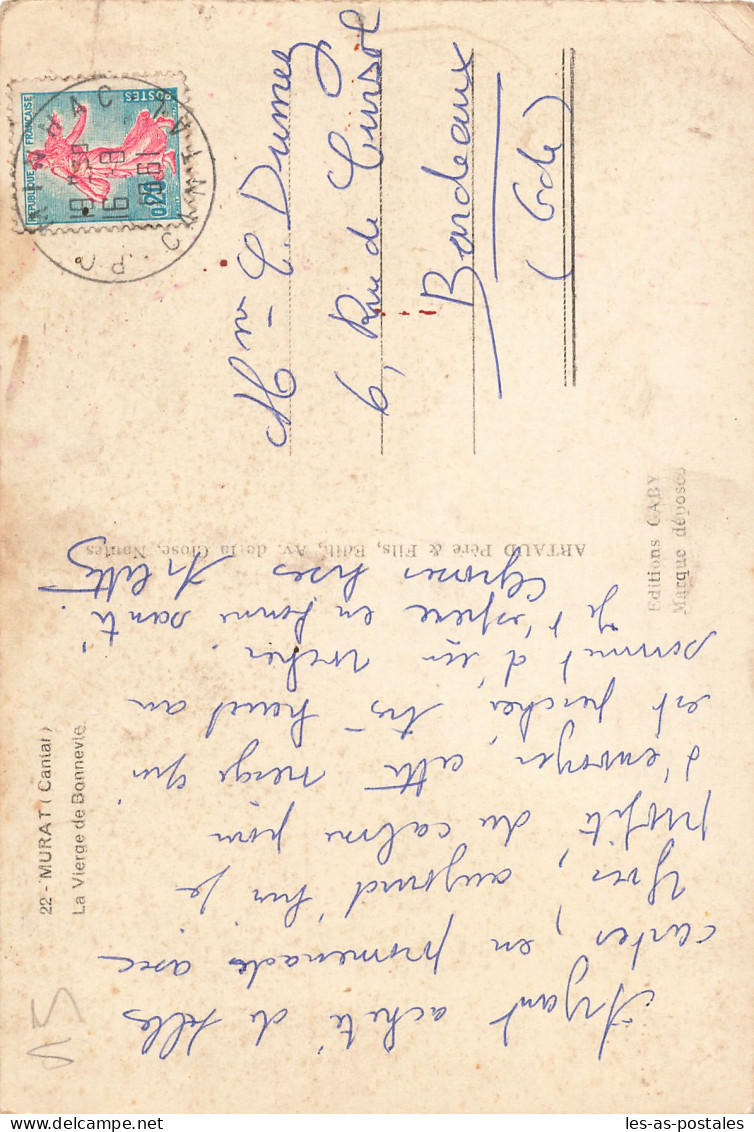 22 - MURAT (Cantal)
La Vierge de Bonnevie
Ayant acheté de telles
cartes, en promenade avec
Yves, aujourd'hui je
profite du calme pour
t'envoyer, cette vierge qui
est perchée, très haut au
sommet d'un rocher.
Je t'espère en bonne santé.
Grosses bises
Arlette
ARTAUD Père & Fils, Edit., Av. de la Close, Nantes
Editions GABY
Marque déposée
REPUBLIQUE FRANÇAISE
POSTES
0,20
CANTAL
Mme C. Dumez
6, Rue de Cursol
Bordeaux
(Gde)
15
les-as-postales.com